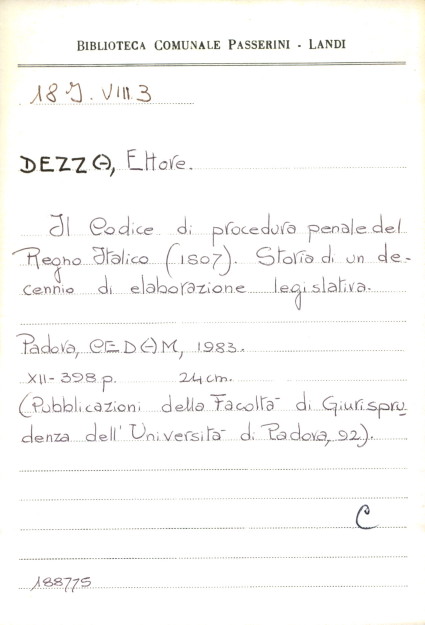 BIBLIOTECA COMUNALE PASSERINI - LANDI
18 J. VIII. 3
DEZZA, Ettore.
Il Codice di procedura penale del
Regno Italico (1807). Storia di un de-
cennio di elaborazione legislativa.
Padova, CEDAM, 1983.
XII-398 p. 24 cm.
(Pubblicazioni della Facoltà di Giurispru
denza dell'Università di Padova, 92).
C
188775